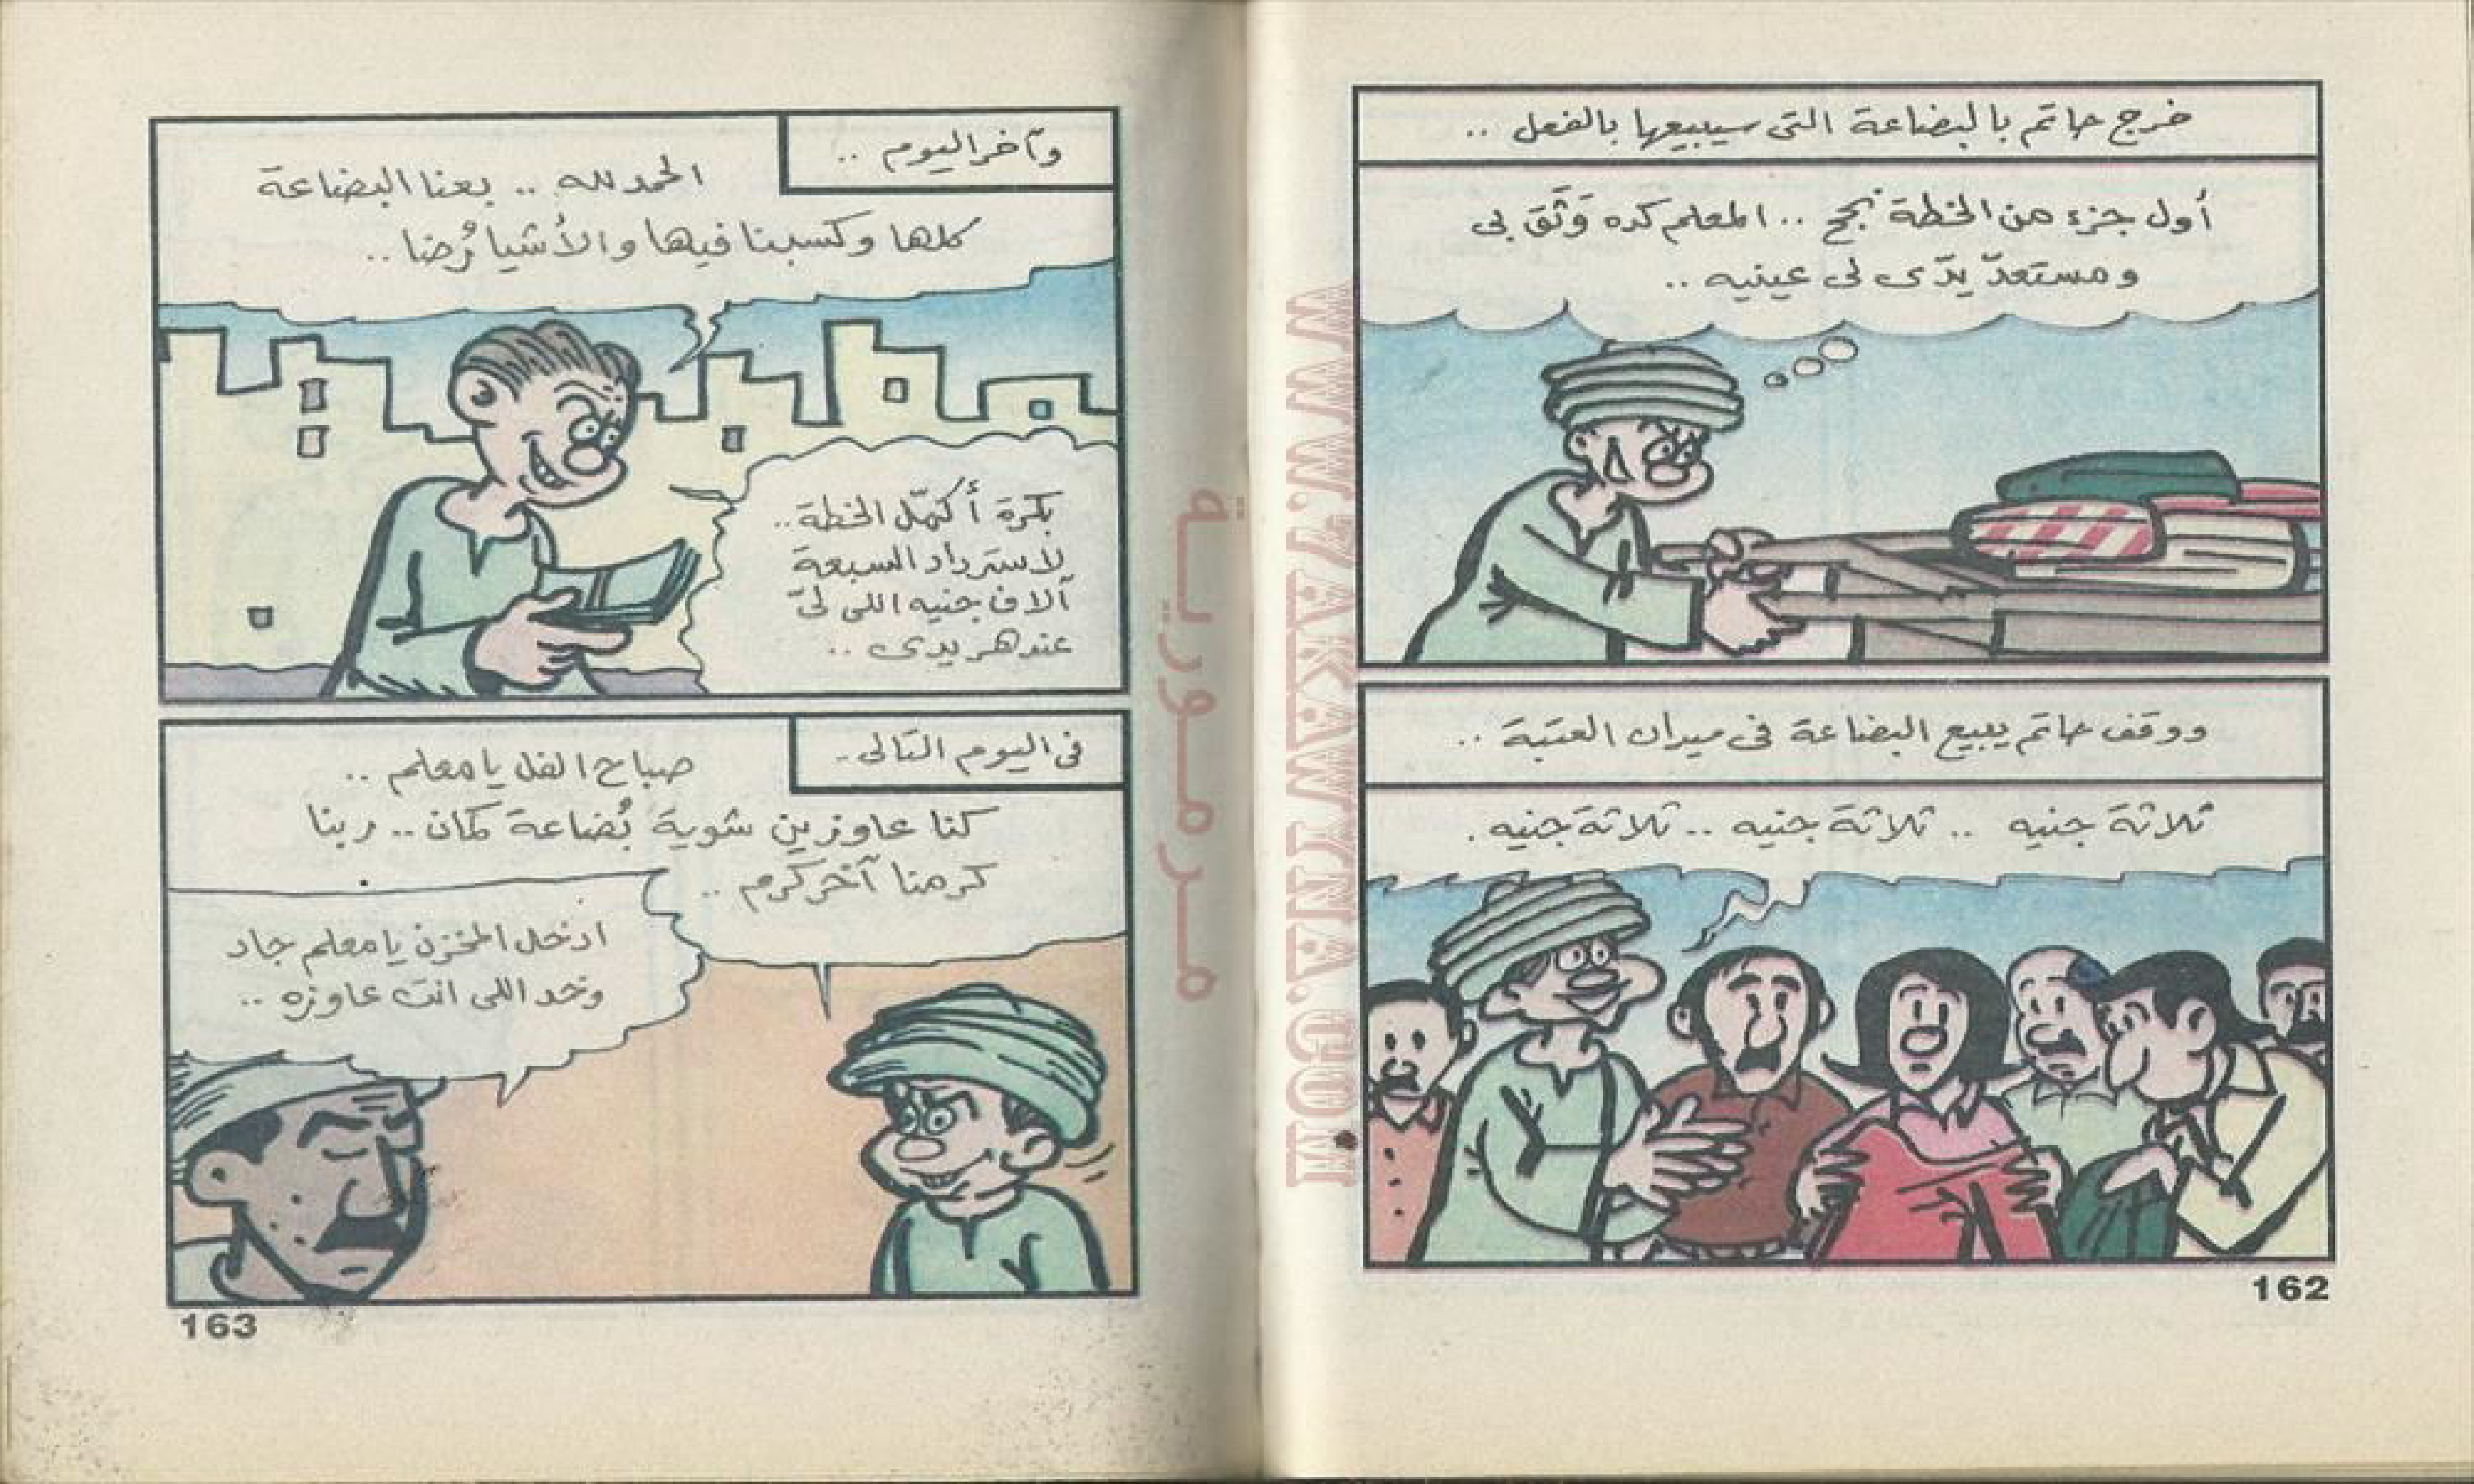 خرج حاتم بالبضاعة التى سيبيعها بالفعل ..
أول جزء من الخطة نجح .. المعلم كده وَثَق بى
ومستعدّ يدّى لى عينيه ..
ووقف حاتم يبيع البضاعة فى ميدان العتبة ..
ثلاثة جنيه .. ثلاثة جنيه .. ثلاثة جنيه .
162
وآخر اليوم ..
الحمد لله .. بعنا البضاعة
كلها وكسبنا فيها والأشيا رُضا ..
بكرة أكمّل الخطة ..
لاسترداد السبعة
آلاف جنيه اللى لىّ
عند هريدى ..
فى اليوم التالى ..
صباح الفل يا معلم ..
كنا عاوزين شوية بُضاعة كمان .. ربنا
كرمنا آخر كرم ..
ادخل المخزن يا معلم جاد
وخد اللى انت عاوزه ..
163
مرمورية
WWW.ARAWYNA.COM